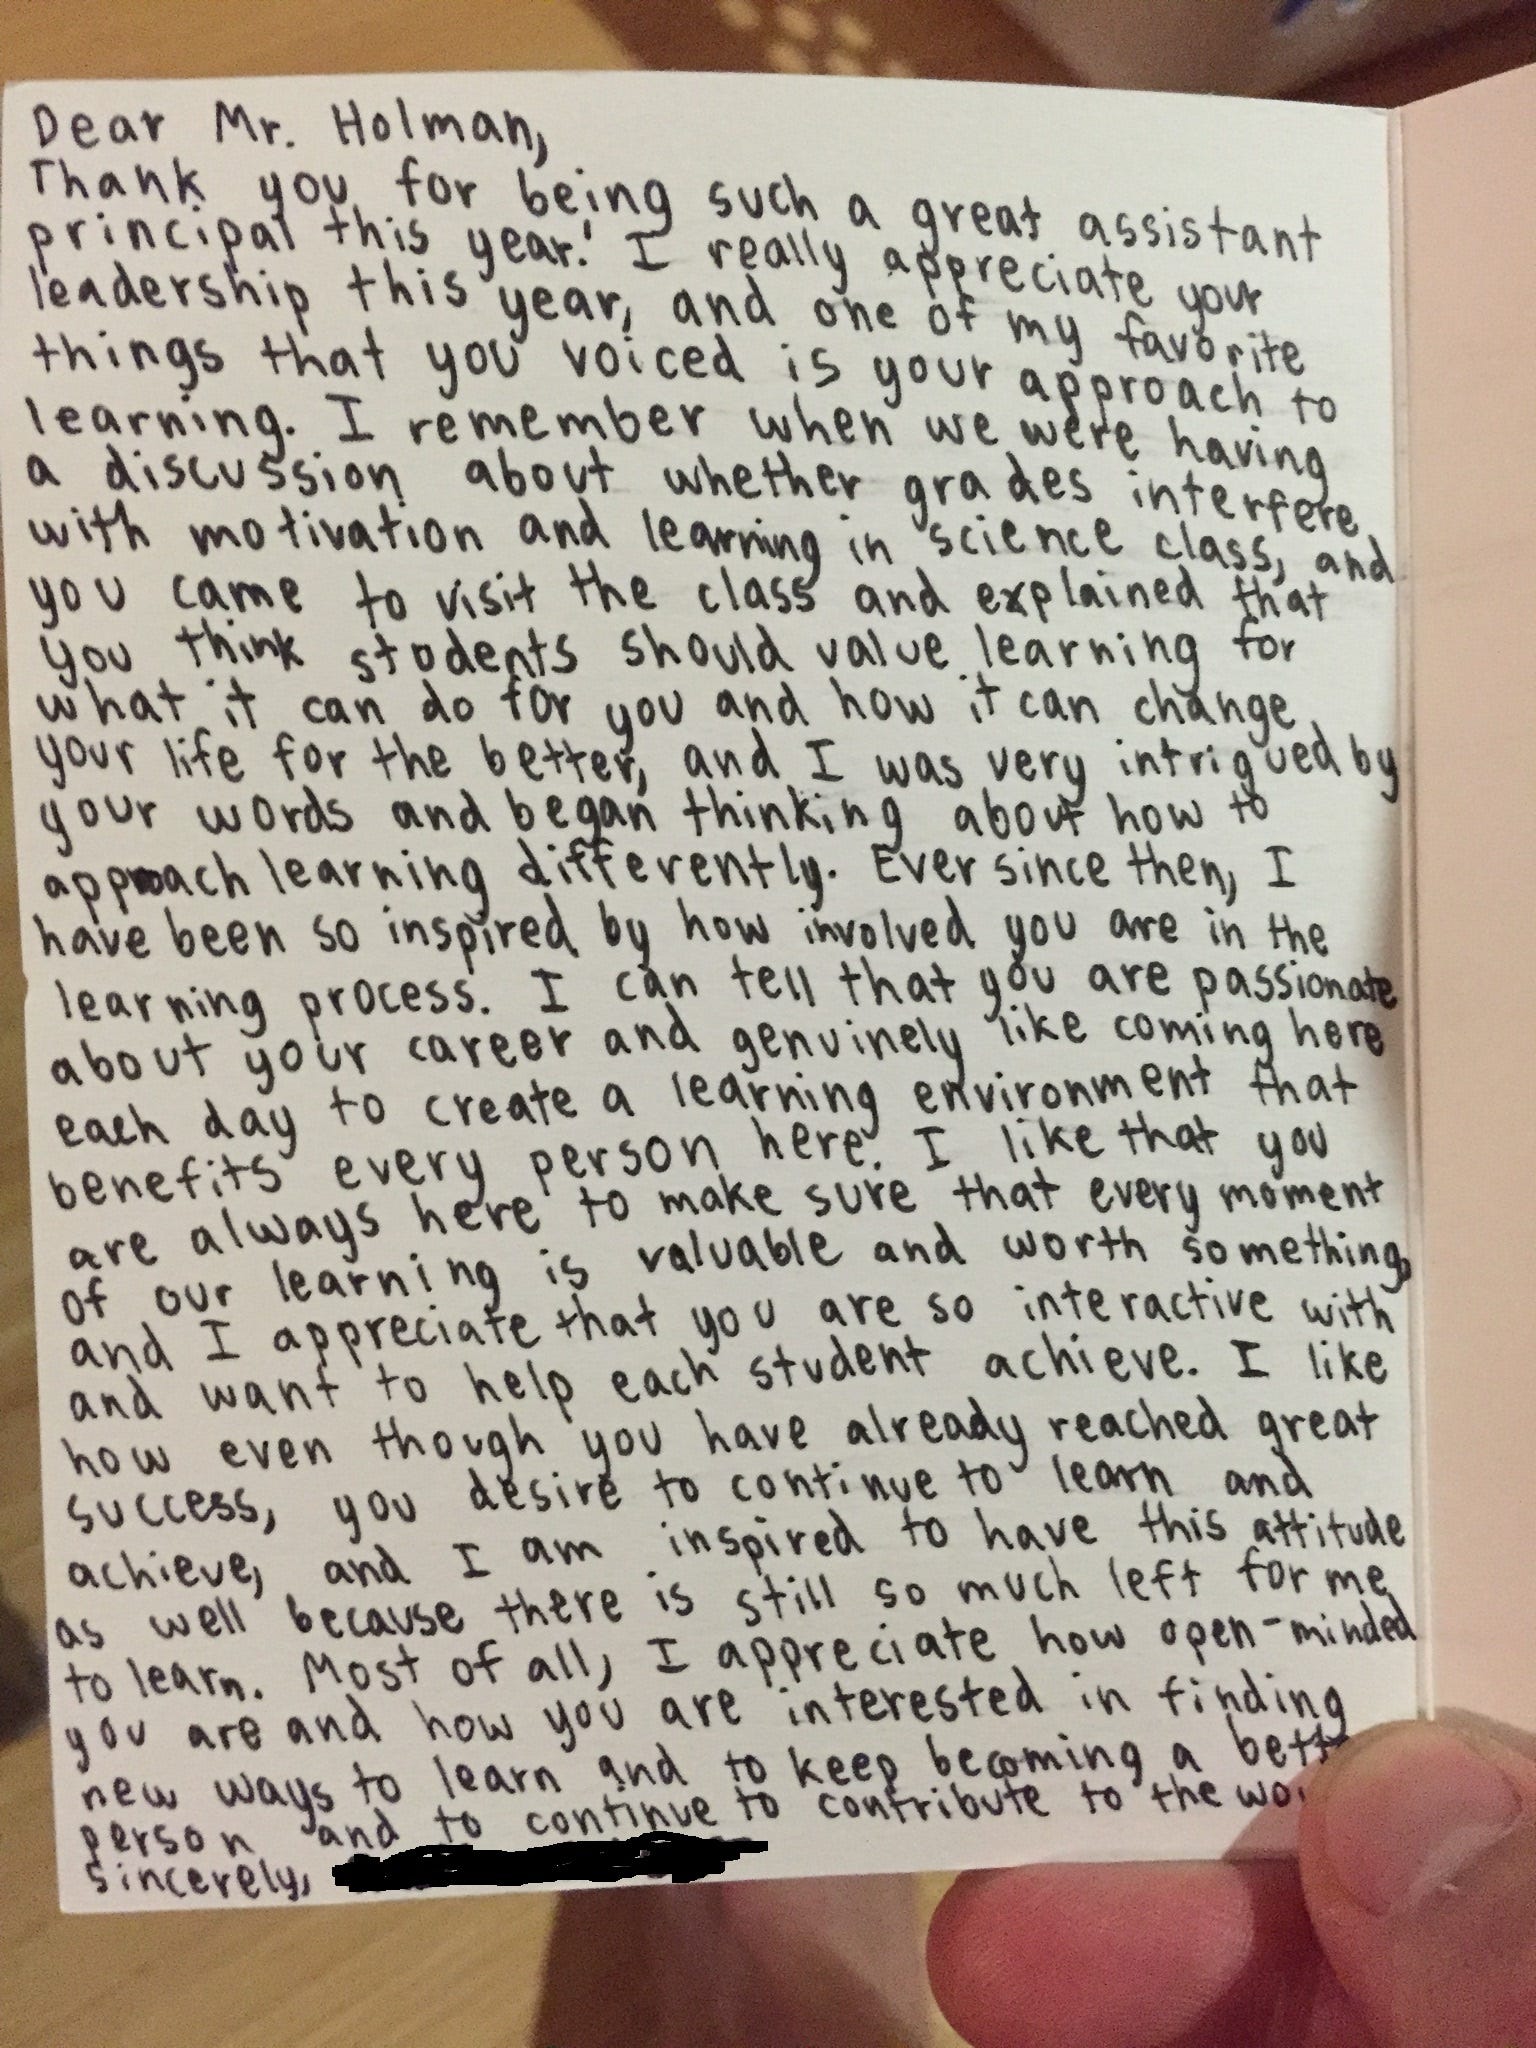 Dear Mr. Holman,
Thank you for being such a great assistant
principal this year! I really appreciate your
leadership this year, and one of my favorite
things that you voiced is your approach to
learning. I remember when we were having
a discussion about whether grades interfere
with motivation and learning in science class, and
you came to visit the class and explained that
you think students should value learning for
what it can do for you and how it can change
your life for the better, and I was very intrigued by
your words and began thinking about how to
approach learning differently. Ever since then, I
have been so inspired by how involved you are in the
learning process. I can tell that you are passionate
about your career and genuinely like coming here
each day to create a learning environment that
benefits every person here. I like that you
are always here to make sure that every moment
of our learning is valuable and worth something,
and I appreciate that you are so interactive with
and want to help each student achieve. I like
how even though you have already reached great
success, you desire to continue to learn and
achieve, and I am inspired to have this attitude
as well because there is still so much left for me
to learn. Most of all, I appreciate how open-minded
you are and how you are interested in finding
new ways to learn and to keep becoming a
person and to continue to contribute to the
sincerely,